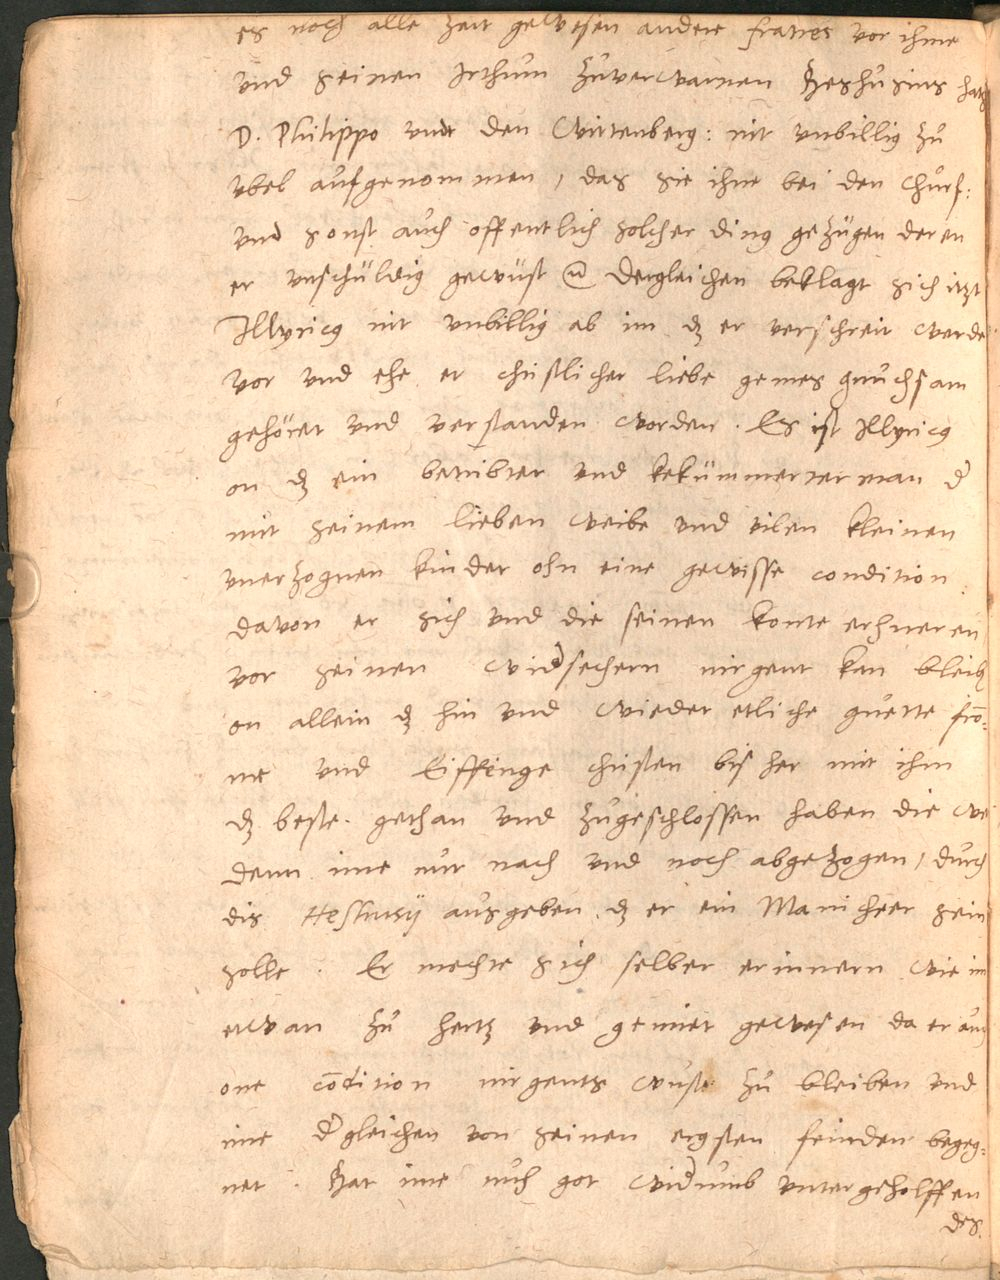 es noch alle zeit gewesen andere fratres vor ihme
vnd seinen Irthum zuverwarnen Heshusius hatt
D. Philippo vndt den Wittenberg: nit vnbillig zu
vbel aufgenommen, das sie ihne bei den Churf:
vnd sonst auch offentlich solcher ding gezügen deren
er vnschüldig gewüst Dergleichen beklagt sich itzt
Illyricg nit vnbillig ab im dz er verschreit werde
vor vnd ehe er christlicher liebe gemes gnuchsam
gehöret vnd verstanden worden. Es ist Illyricg
on dz ein betrübter vnd bekümmerter man d
mit seinem lieben weibe vnd vilen kleinen
vnerzognen kinder ohn eine gewisse condition
davon er sich vnd die seinen konte erhneren
vor seinen widsechern nirgent kan bleib
on allein dz hin vnd wieder etliche guette fro-
me vnd Eiffrige christen bis her mit ihm
dz beste gethan vnd zugeschlossen haben die we
denn ime nur nach vnd noch abgezogen, durch
dis Heshusij ausgeben dz er ein Manicheer sein
solle. Er mechte sich selber erinnern wie im
etwan zu hertz vnd gemiet gewesen da er auch
one cōdition nirgents wuste zu bleiben vnd
ime dgleichen von seinen ergsten feinden begeg-
net. Hat ime nuh got widumb vntergeholffen
des.